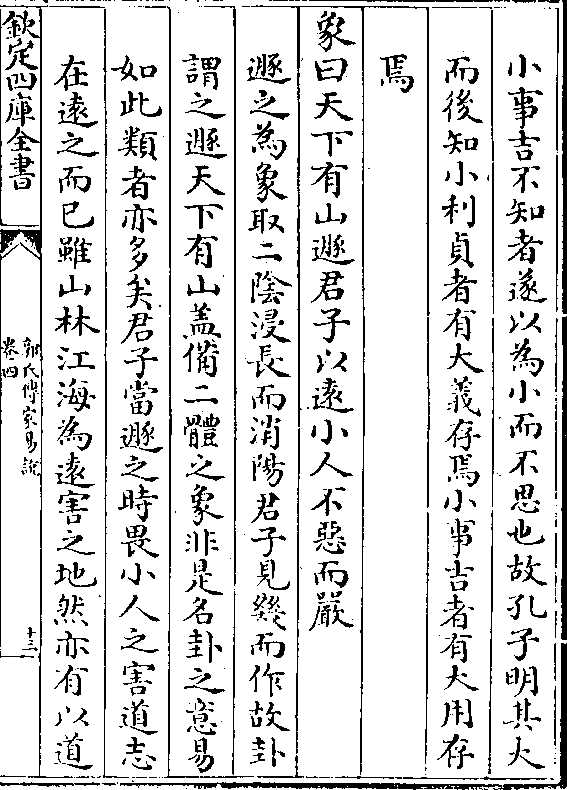 小事吉不知者遂以為小而不思也故孔子明其大
而後知小利貞者有大義存焉小事吉者有大用存
焉
象曰天下有山遯君子以遠小人不惡而嚴
遯之為象取二陰浸長而消陽君子見幾而作故卦
謂之遯天下有山蓋備二體之象非是名卦之意易
如此類者亦多矣君子當遯之時畏小人之害道志
在遠之而已雖山林江海為遠害之地然亦有以道
欽定四庫全書
郭氏傳家易說
卷四
十三